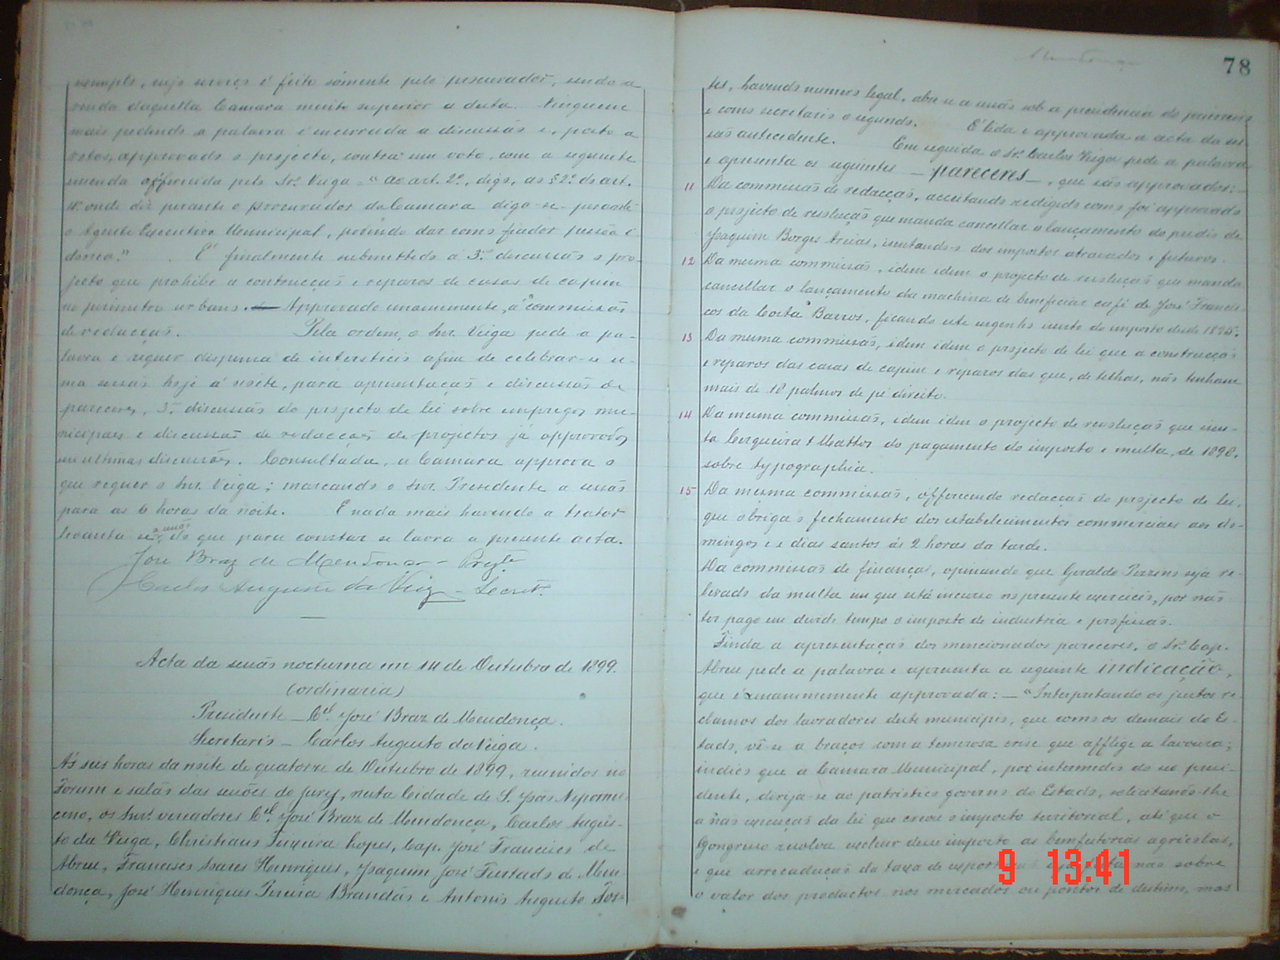 exemplo, cujo serviço é feito sómente pelo procurador, sendo a
renda daquella Camara muito superior a desta. Ninguem
mais pedindo a palavra é encerrada a discussão e, posto a
votos, approvado o projecto, contra um voto, com a seguinte
emenda offerecida pelo Sr. Veiga "ao art. 2º, digo, ao § 2º do art.
onde diz perante o procurador da Camara diga-se perante
o Agente Executivo Municipal, podendo dar como fiador pessôa i-
donea." É finalmente submettido á 3ª discussão o pro-
jecto que prohibe a construcção e reparos de casas de capim
no perimetro urbano. Approvado unanimemente, á commissão
de redacção. Pela ordem, o Snr. Veiga pede a pa-
lavra e requer dispensa de intersticio afim de celebrar-se u-
ma sessão hoje á noite, para apresentação e discussão de
pareceres, 3ª discussão do projecto de lei sobre empregos mu-
nicipaes e discussão de redacção de projectos já approvados
em ultima discussão. Consultada, a Camara approva o
que requer o Snr. Veiga; marcando o Snr. Presidente a sessão
para as 6 horas da noite. E nada mais havendo a tratar
levanta-se a sessão do que para constar se lavra a presente acta.
José Braz de Mendonça - Presidte
Carlos Augusto da Veiga - Secret.
Acta da sessão nocturna em 14 de Outubro de 1899.
(ordinaria)
Presidente - Cel. José Braz de Mendonça.
Secretario - Carlos Augusto da Veiga.
Ás seis horas da noite de quatorze de Outubro de 1899, reunidos no
Forum e salão das sessões do jury, nesta Cidade de S. João Nepomu-
ceno, os Snrs. vereadores Cel. José Braz de Mendonça, Carlos Augus-
to da Veiga, Christiano Teixeira Lopes, Cap. José Francisco de
Abreu, Francisco Soares Henriques, Joaquim José Furtado de Men-
donça, José Henriques Pereira Brandão e Antonio Augusto
78
tes, havendo numero legal, abre-se a sessão sob a presidencia do primeiro
e como secretario o segundo. É lida e approvada a acta da ses-
são antecedente. Em seguida o Sr. Carlos Veiga pede a palavra
e apresenta os seguintes - pareceres -, que são approvados:
11 Da commissão de redacção, acceitando redigido como foi approvado
o projecto de resolução que manda cancellar o lançamento do predio de
Joaquim Borges Areias, isentando-o dos impostos atrazados e futuros.
12 Da mesma commissão, idem idem o projecto de resolução que manda
cancellar o lançamento da machina de beneficiar café de José Francis-
co da Costa Barros, ficando este engenho isento do imposto desde 1895.
13 Da mesma commissão, idem idem o projecto de lei que a construcção
e reparos das casas de capim e reparos das que, de telhas, não tenham
mais de 18 palmos de pé direito.
14 Da mesma commissão, idem idem o projecto de resolução que isen-
ta Cerqueira & Mattos do pagamento do imposto e multa, de 1898,
sobre typographia.
15 Da mesma commissão, offerecendo redacção do projecto de lei,
que obriga o fechamento dos estabelecimentos commerciaes aos do-
mingos e dias santos ás 2 horas da tarde.
Da commissão de finanças, opinando que Geraldo seja re-
levado da multa em que está incurso no presente exercicio, por não
ter pago em devido tempo o imposto de industria e profissão.
Finda a apresentação dos mencionados pareceres, o Sr. Cap.
Abreu pede a palavra e apresenta a seguinte indicação,
que é unanimemente approvada: - "Interpretando os justos re-
clamos dos lavradores deste municipio, que como os demais do Es-
tado, vê-se a braços com a temerosa crise que afflige a lavoura,
indico que a Camara Municipal, por intermedio do seu presi-
dente, dirija-se ao patriotico governo do Estado, solicitando-lhe
a não execução da lei que creou o imposto territorial, até que o
Congresso resolva excluir desse imposto as bemfeitorias agricolas,
e que a arrecadação da taxa de export não sobre
o valor dos productos nos mercados ou pontos de mas
9 13:41